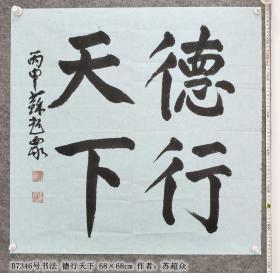 德行
天下
丙申苏超众
B7346号书法 德行天下 68×68cm 作者：苏超众